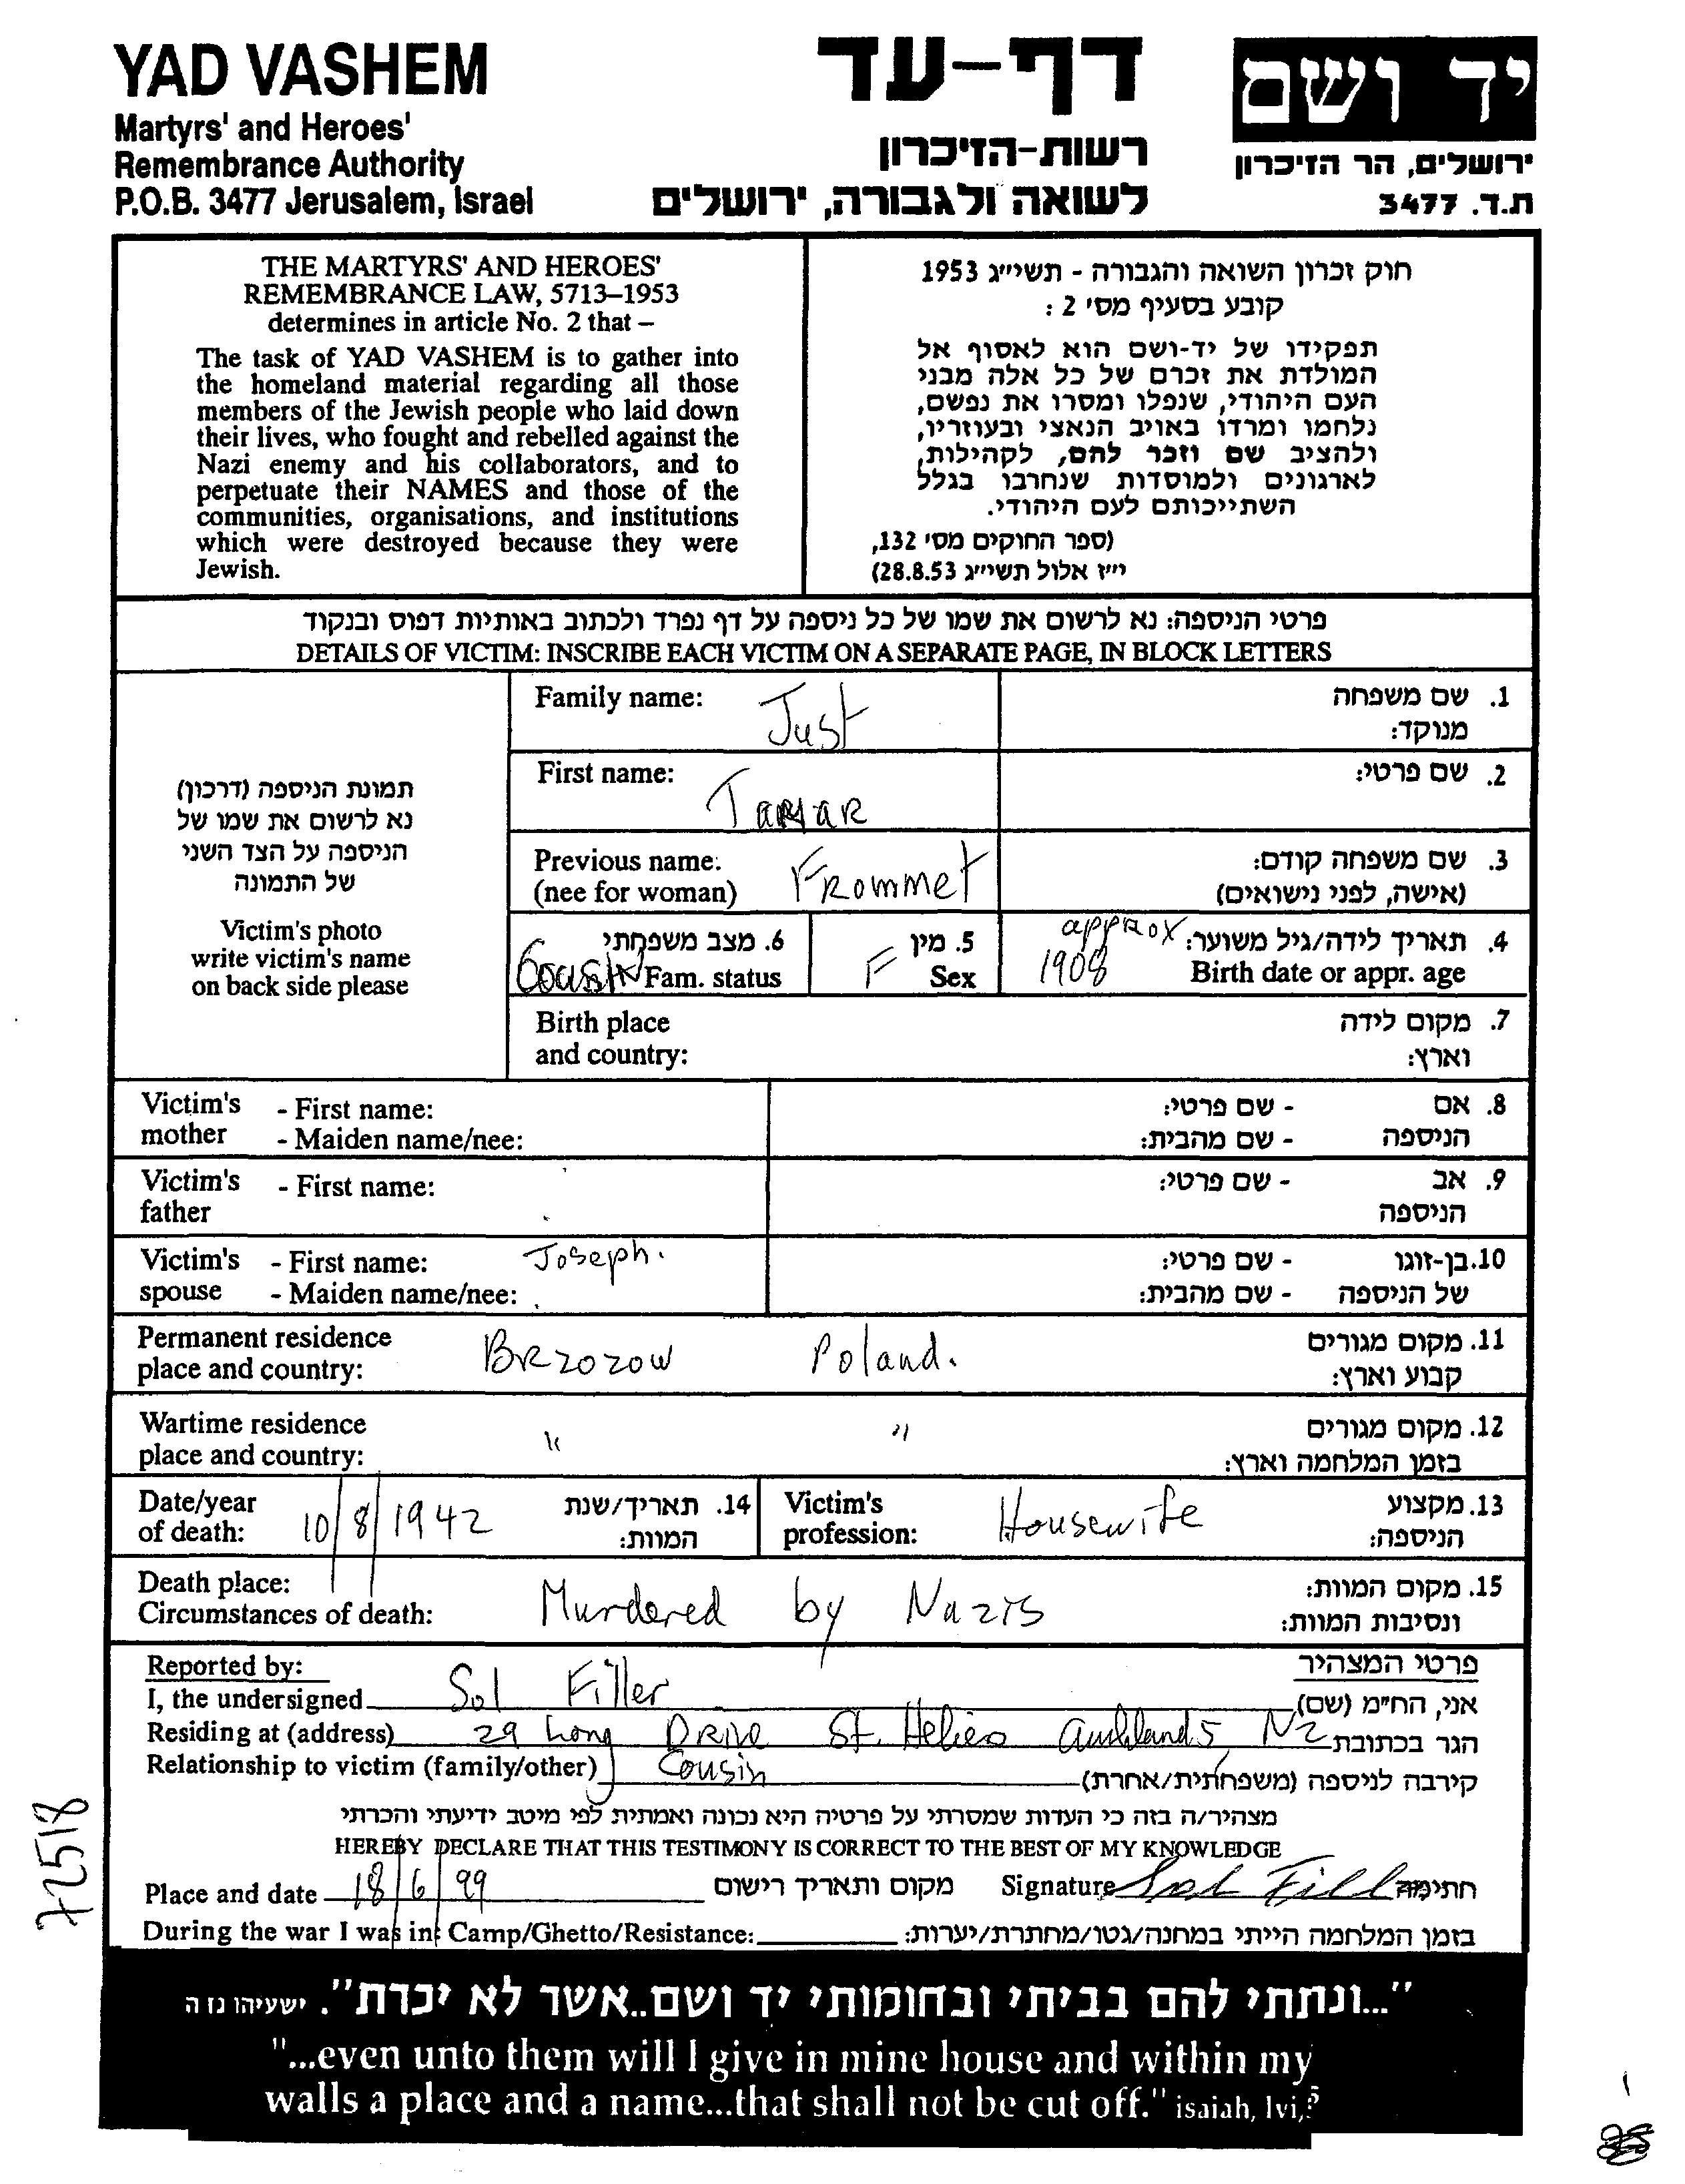 YAD VASHEM
Martyrs' and Heroes'
Remembrance Authority
P.O.B. 3477 Jerusalem, Israel
דף-עד
רשות-הזיכרון
לשואה ולגבורה, ירושלים
יד ושם
ירושלים, הר הזיכרון
ת.ד. 3477
THE MARTYRS' AND HEROES'
REMEMBRANCE LAW, 5713–1953
determines in article No. 2 that –
The task of YAD VASHEM is to gather into
the homeland material regarding all those
members of the Jewish people who laid down
their lives, who fought and rebelled against the
Nazi enemy and his collaborators, and to
perpetuate their NAMES and those of the
communities, organisations, and institutions
which were destroyed because they were
Jewish.
חוק זכרון השואה והגבורה - תשי״ג 1953
קובע בסעיף מס׳ 2 :
תפקידו של יד-ושם הוא לאסוף אל
המולדת את זכרם של כל אלה מבני
העם היהודי, שנפלו ומסרו את נפשם,
נלחמו ומרדו באויב הנאצי ובעוזריו,
ולהציב שם וזכר להם, לקהילות,
לארגונים ולמוסדות שנחרבו בגלל
השתייכותם לעם היהודי.
(ספר החוקים מס׳ 132,
י״ז אלול תשי״ג 28.8.53)
פרטי הניספה: נא לרשום את שמו של כל ניספה על דף נפרד ולכתוב באותיות דפוס ובנקוד
DETAILS OF VICTIM: INSCRIBE EACH VICTIM ON A SEPARATE PAGE, IN BLOCK LETTERS
תמונת הניספה (דרכון)
נא לרשום את שמו של
הניספה על הצד השני
של התמונה
Victim's photo
write victim's name
on back side please
Family name: Just 1. שם משפחה
מנוקד:
First name: Tamar 2. שם פרטי:
Previous name: Frommet 3. שם משפחה קודם:
(nee for woman) (אישה, לפני נישואים)
6. מצב משפחתי 5. מין approx 4. תאריך לידה/גיל משוער:
Cousin Fam. status F Sex 1908 Birth date or appr. age
Birth place 7. מקום לידה
and country: וארץ:
Victim's - First name: - שם פרטי: 8. אם
mother - Maiden name/nee: - שם מהבית: הניספה
Victim's - First name: - שם פרטי: 9. אב
father הניספה
Victim's - First name: Joseph. - שם פרטי: 10. בן-זוגו
spouse - Maiden name/nee: - שם מהבית: של הניספה
Permanent residence 11. מקום מגורים
place and country: Brzozow Poland. קבוע וארץ:
Wartime residence 12. מקום מגורים
place and country: " " בזמן המלחמה וארץ:
Date/year 14. תאריך/שנת Victim's 13. מקצוע
of death: 10/8/1942 המוות: profession: Housewife הניספה:
Death place: 15. מקום המוות:
Circumstances of death: Murdered by Nazis ונסיבות המוות:
Reported by: פרטי המצהיר
I, the undersigned Sol Filler אני, הח״מ (שם)
Residing at (address) 29 Long Drive St. Heliers Auckland 5, NZ הגר בכתובת
Relationship to victim (family/other) Cousin קירבה לניספה (משפחתית/אחרת)
מצהיר/ה בזה כי העדות שמסרתי על פרטיה היא נכונה ואמתית לפי מיטב ידיעתי והכרתי
HEREBY DECLARE THAT THIS TESTIMONY IS CORRECT TO THE BEST OF MY KNOWLEDGE
Place and date 18/6/99 מקום ותאריך רישום Signature Sol Filler חתימה
During the war I was in: Camp/Ghetto/Resistance: בזמן המלחמה הייתי במחנה/גטו/מחתרת/יערות:
72518
"...ונתתי להם בביתי ובחומותי יד ושם..אשר לא יכרת". ישעיהו נז ה
"...even unto them will I give in mine house and within my
walls a place and a name...that shall not be cut off." isaiah, lvi,5